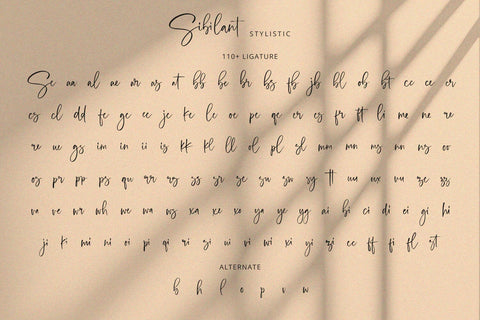 Sibilant STYLISTIC
110+ LIGATURE
Se aa al ae ar as at bb be br bs fb jb bl ob bt cc ce er
es cl dd fe ge ee je ke le oe pe qe er es fr ft li me ne re
re ue gs im in ii is kk kl ll ol pl sl mm mn ms nn ns oo
os pr pp ps qu rr rs ss sr se su sw sy tt uu ux vu ze zs
va ve wr wh we wa ws xa xe xo ya ye yg ai bi ci di ei gi hi
ji ki mi ni oi pi qi ri si ui vi wi xi yi zi ee ff fi fl st
ALTERNATE
b h l o p v w